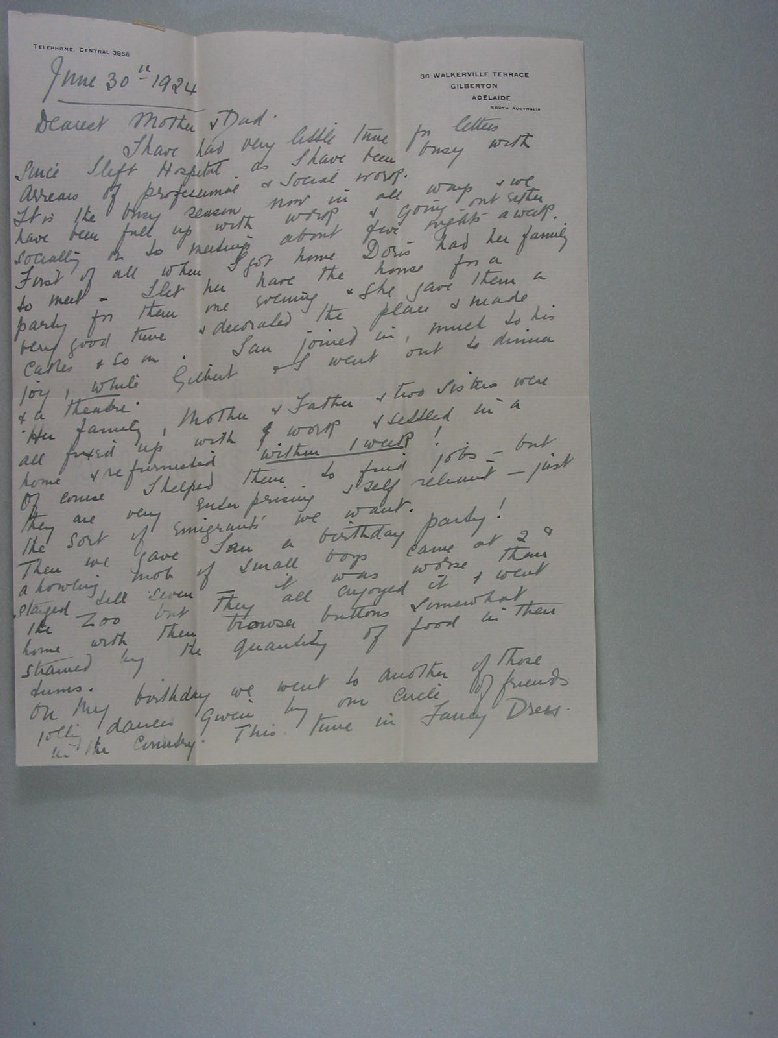 TELEPHONE, CENTRAL 3956
30 WALKERVILLE TERRACE
GILBERTON
ADELAIDE
SOUTH AUSTRALIA
June 30th 1924
Dearest Mother & Dad.
I have had very little time for letters
since I left Hospital as I have been busy with
arrears of professional & social work.
It is the busy season now in all ways & we
have been full up with work & going out either
socially or to meetings about five nights a week.
First of all when I got home Doris had her family
to meet - I let her have the house for a
party for them one evening & she gave them a
very good time & decorated the place & made
cakes & so on. Ian joined in, much to his
joy, while Gilbert & I went out to dinner
& a theatre.
Her family, Mother & Father & two sisters were
all fixed up with work & settled in a
home & refurnished within 1 week!
Of course I helped them to find jobs - but
they are very enterprising & self reliant - just
the sort of emigrants we want.
Then we gave Ian a birthday party!
a howling mob of small boys came at 2 &
stayed till seven - it was worse than
the Zoo but they all enjoyed it & went
home with their trowser buttons somewhat
strained by the quantity of food in their
tums.
On my birthday we went to another of those
jolly dances given by our circle of friends
in the country. This time in Fancy Dress.